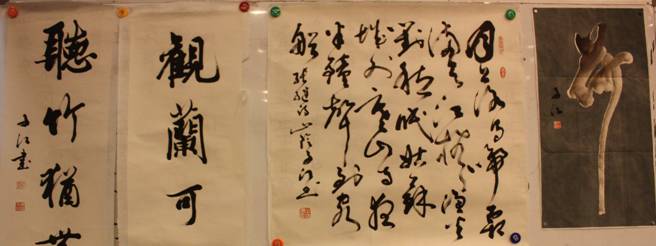 子江
月落烏啼霜
滿天江楓漁火
對愁眠姑蘇
城外寒山寺夜
半鐘聲到客
船
張繼詩
觀蘭可
聽竹猶
子江書